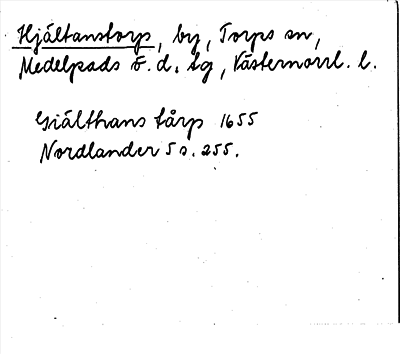 Hjältanstorp, by, Torps sn,
Medelpads v. d. tg, Västernorrl. l.
Giälthans tårp 1655
Nordlander 5 s. 255.